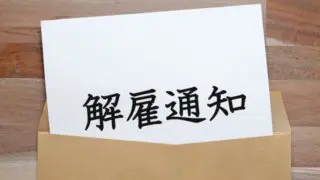 解雇通知